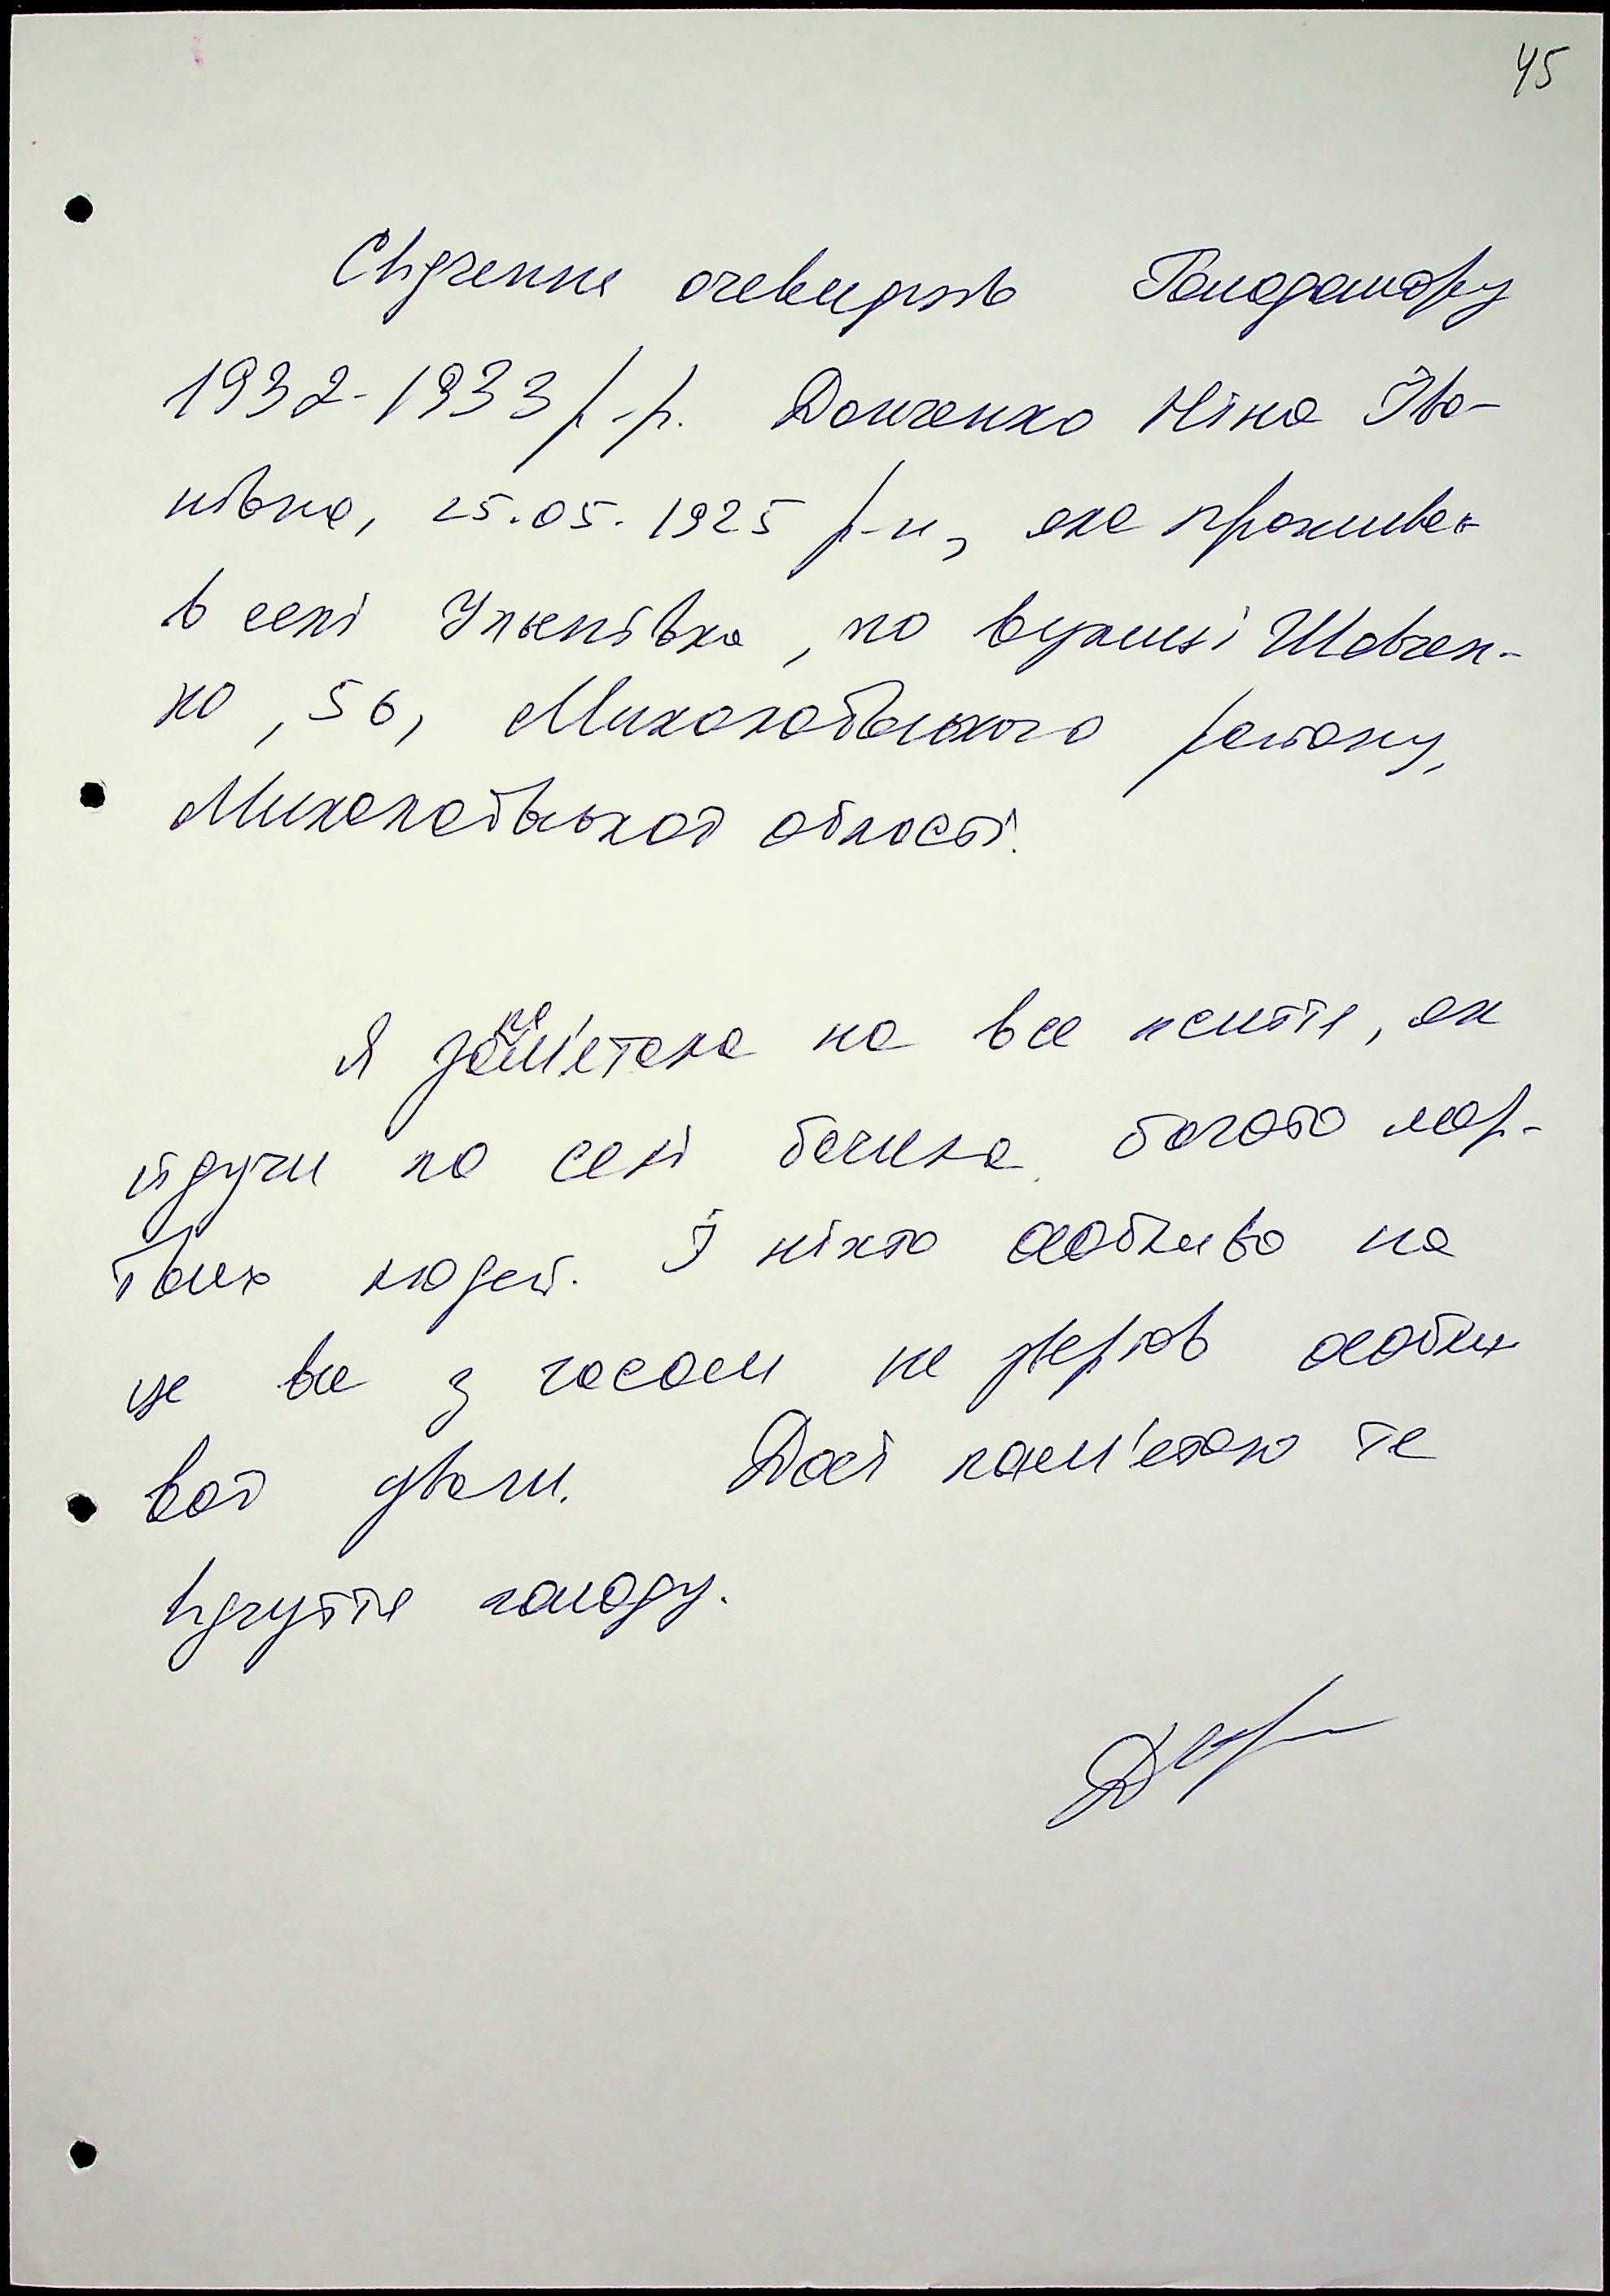 45
Свідчення очевидців Голодомору
1932-1933 р-р. Донченко Ніна Іва-
нівна, 25.05.1925 р-н, яка проживає
в селі Улянівка, по вулиці Шевчен-
ко, 56, Миколаївського району,
Миколаївської області.
Я запам'ятала на все життя, як
йдучи по селі бачила багато мер-
твих людей. І ніхто особливо на
це все з часом не звертав особли
вої уваги. Досі пам'ятаю те
відчуття голоду.